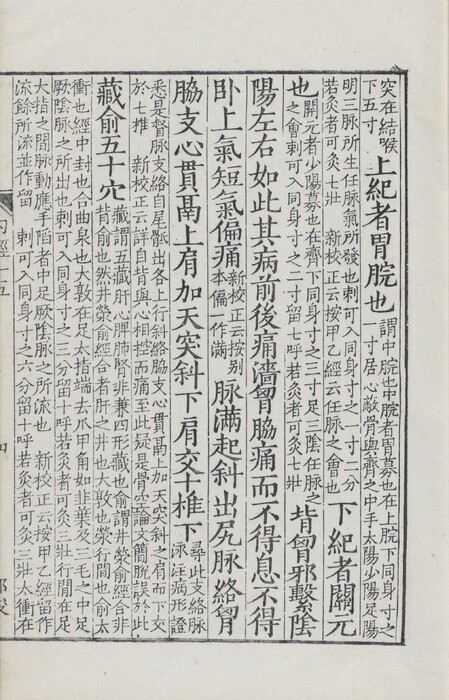 突在結喉
下五寸
上紀者胃脘也
謂中脘也中脘者胃募也在上脘下同身寸之
一寸居心蔽骨與齊之中手太陽少陽足陽
明三脈所生任脈氣所發也刺可入同身寸之一寸二分
若灸者可灸七壯 新校正云按甲乙經云任脈之會也
下紀者關元
也
開元者少陽募也在齊下同身寸之三寸足三陰任脈
之會刺可入同身寸之二寸留七呼若灸者可灸七壯
背胷邪繫陰
陽左右如此其病前後痛濇胷脇痛而不得息不得
卧上氣短氣偏痛
新校正云按别
本偏一作滿
脈滿起斜出尻脈絡胷
脇支心貫鬲上肩加天突斜下肩交十椎下
尋此支絡脈
泳注病形證
悉是督脈支絡自尾骶出各上行斜絡脇支心貫鬲上加天突斜之肩而下交
於七椎 新校正云詳自背與心相控而痛至此疑是骨空論文簡脫誤於此
藏俞五十穴
藏謂五藏肝心脾肺腎非兼四形藏也俞謂井滎俞經合非
背俞也然井滎俞經合者肝之井也大敦也滎行間也俞太
衝也經中封也合曲泉也大敦在足大指端去爪甲角如韭葉及三毛之中足
厥陰脈之所出也刺可入同身寸之三分留十呼若灸者可灸三壯行間在足
大指之間脈動應手陷者中足厥陰脈之所流也 新校正云按甲乙經留作
流餘所流並作留 刺可入同身寸之六分留十呼若灸者可灸三壯太衝在